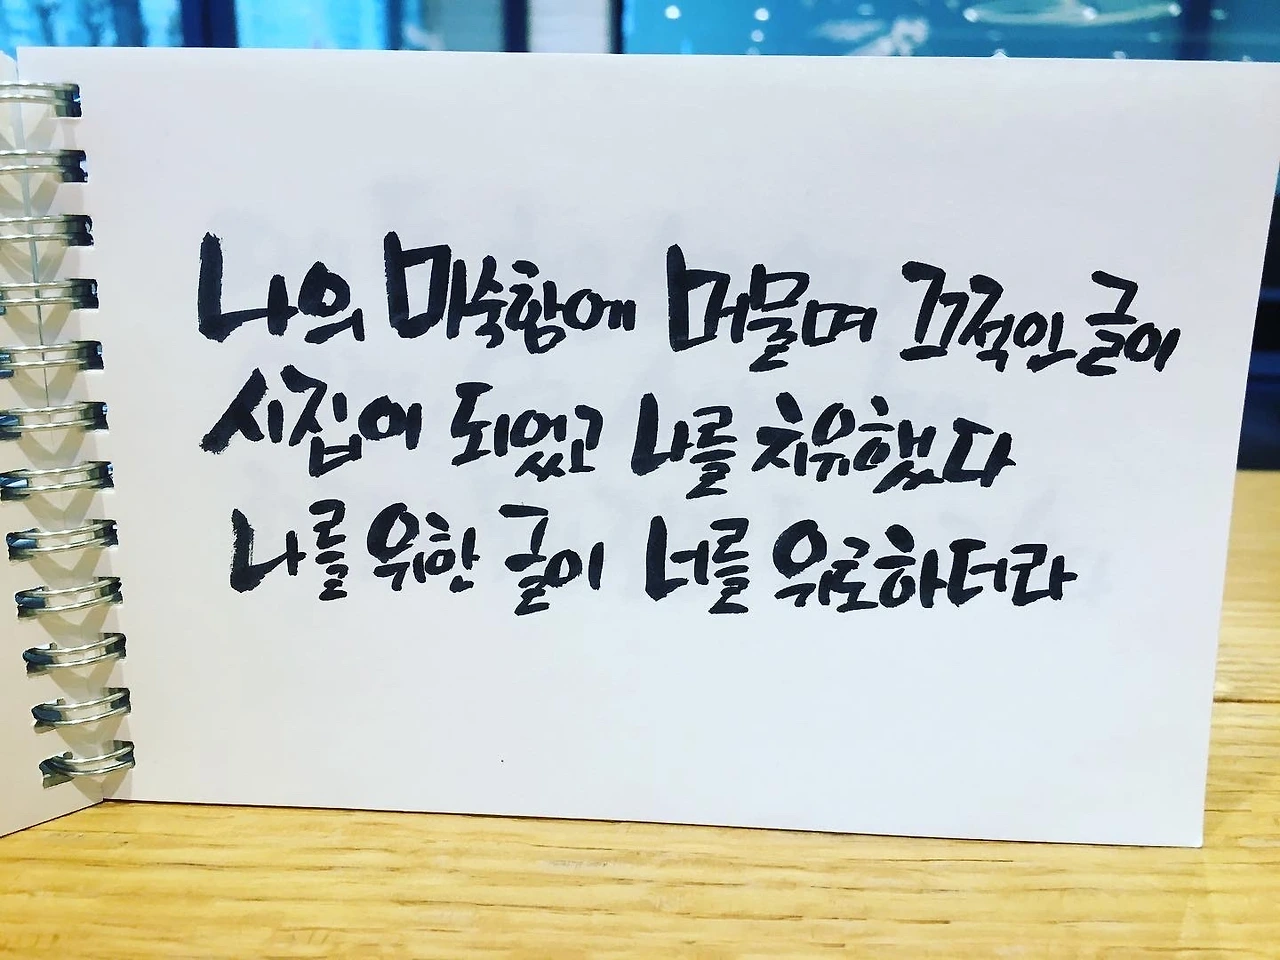 나의 미숙함에 머물며 끄적인 글이
시집이 되었고 나를 치유했다
나를 위한 글이 너를 위로하더라